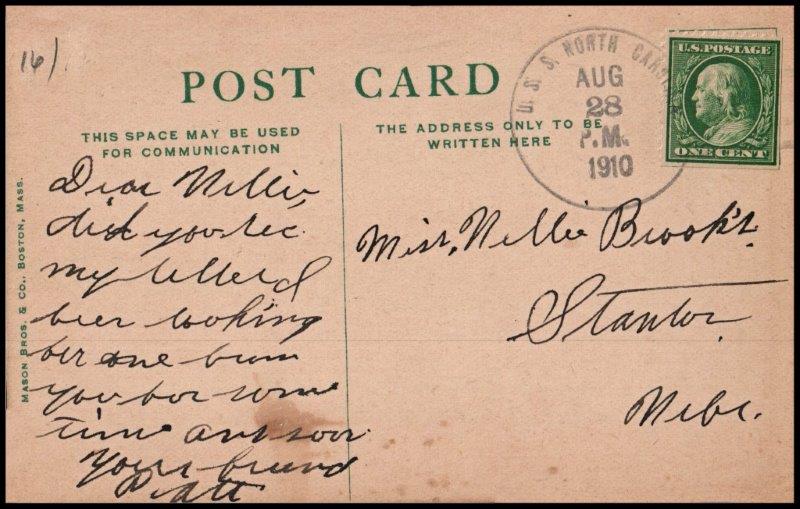 16)
POST CARD
THIS SPACE MAY BE USED
FOR COMMUNICATION
THE ADDRESS ONLY TO BE
WRITTEN HERE
U.S.S. NORTH CAROLINA
AUG
28
P.M.
1910
U.S. POSTAGE
ONE CENT
MASON BROS. & CO., BOSTON, MASS.
Dear Nellie,
did you rec
my letter I
beer looking
ber one brum
you bor some
time ans soor
Your friend
Platt
Miss, Nellie Brook's.
Stanton.
Nebr.